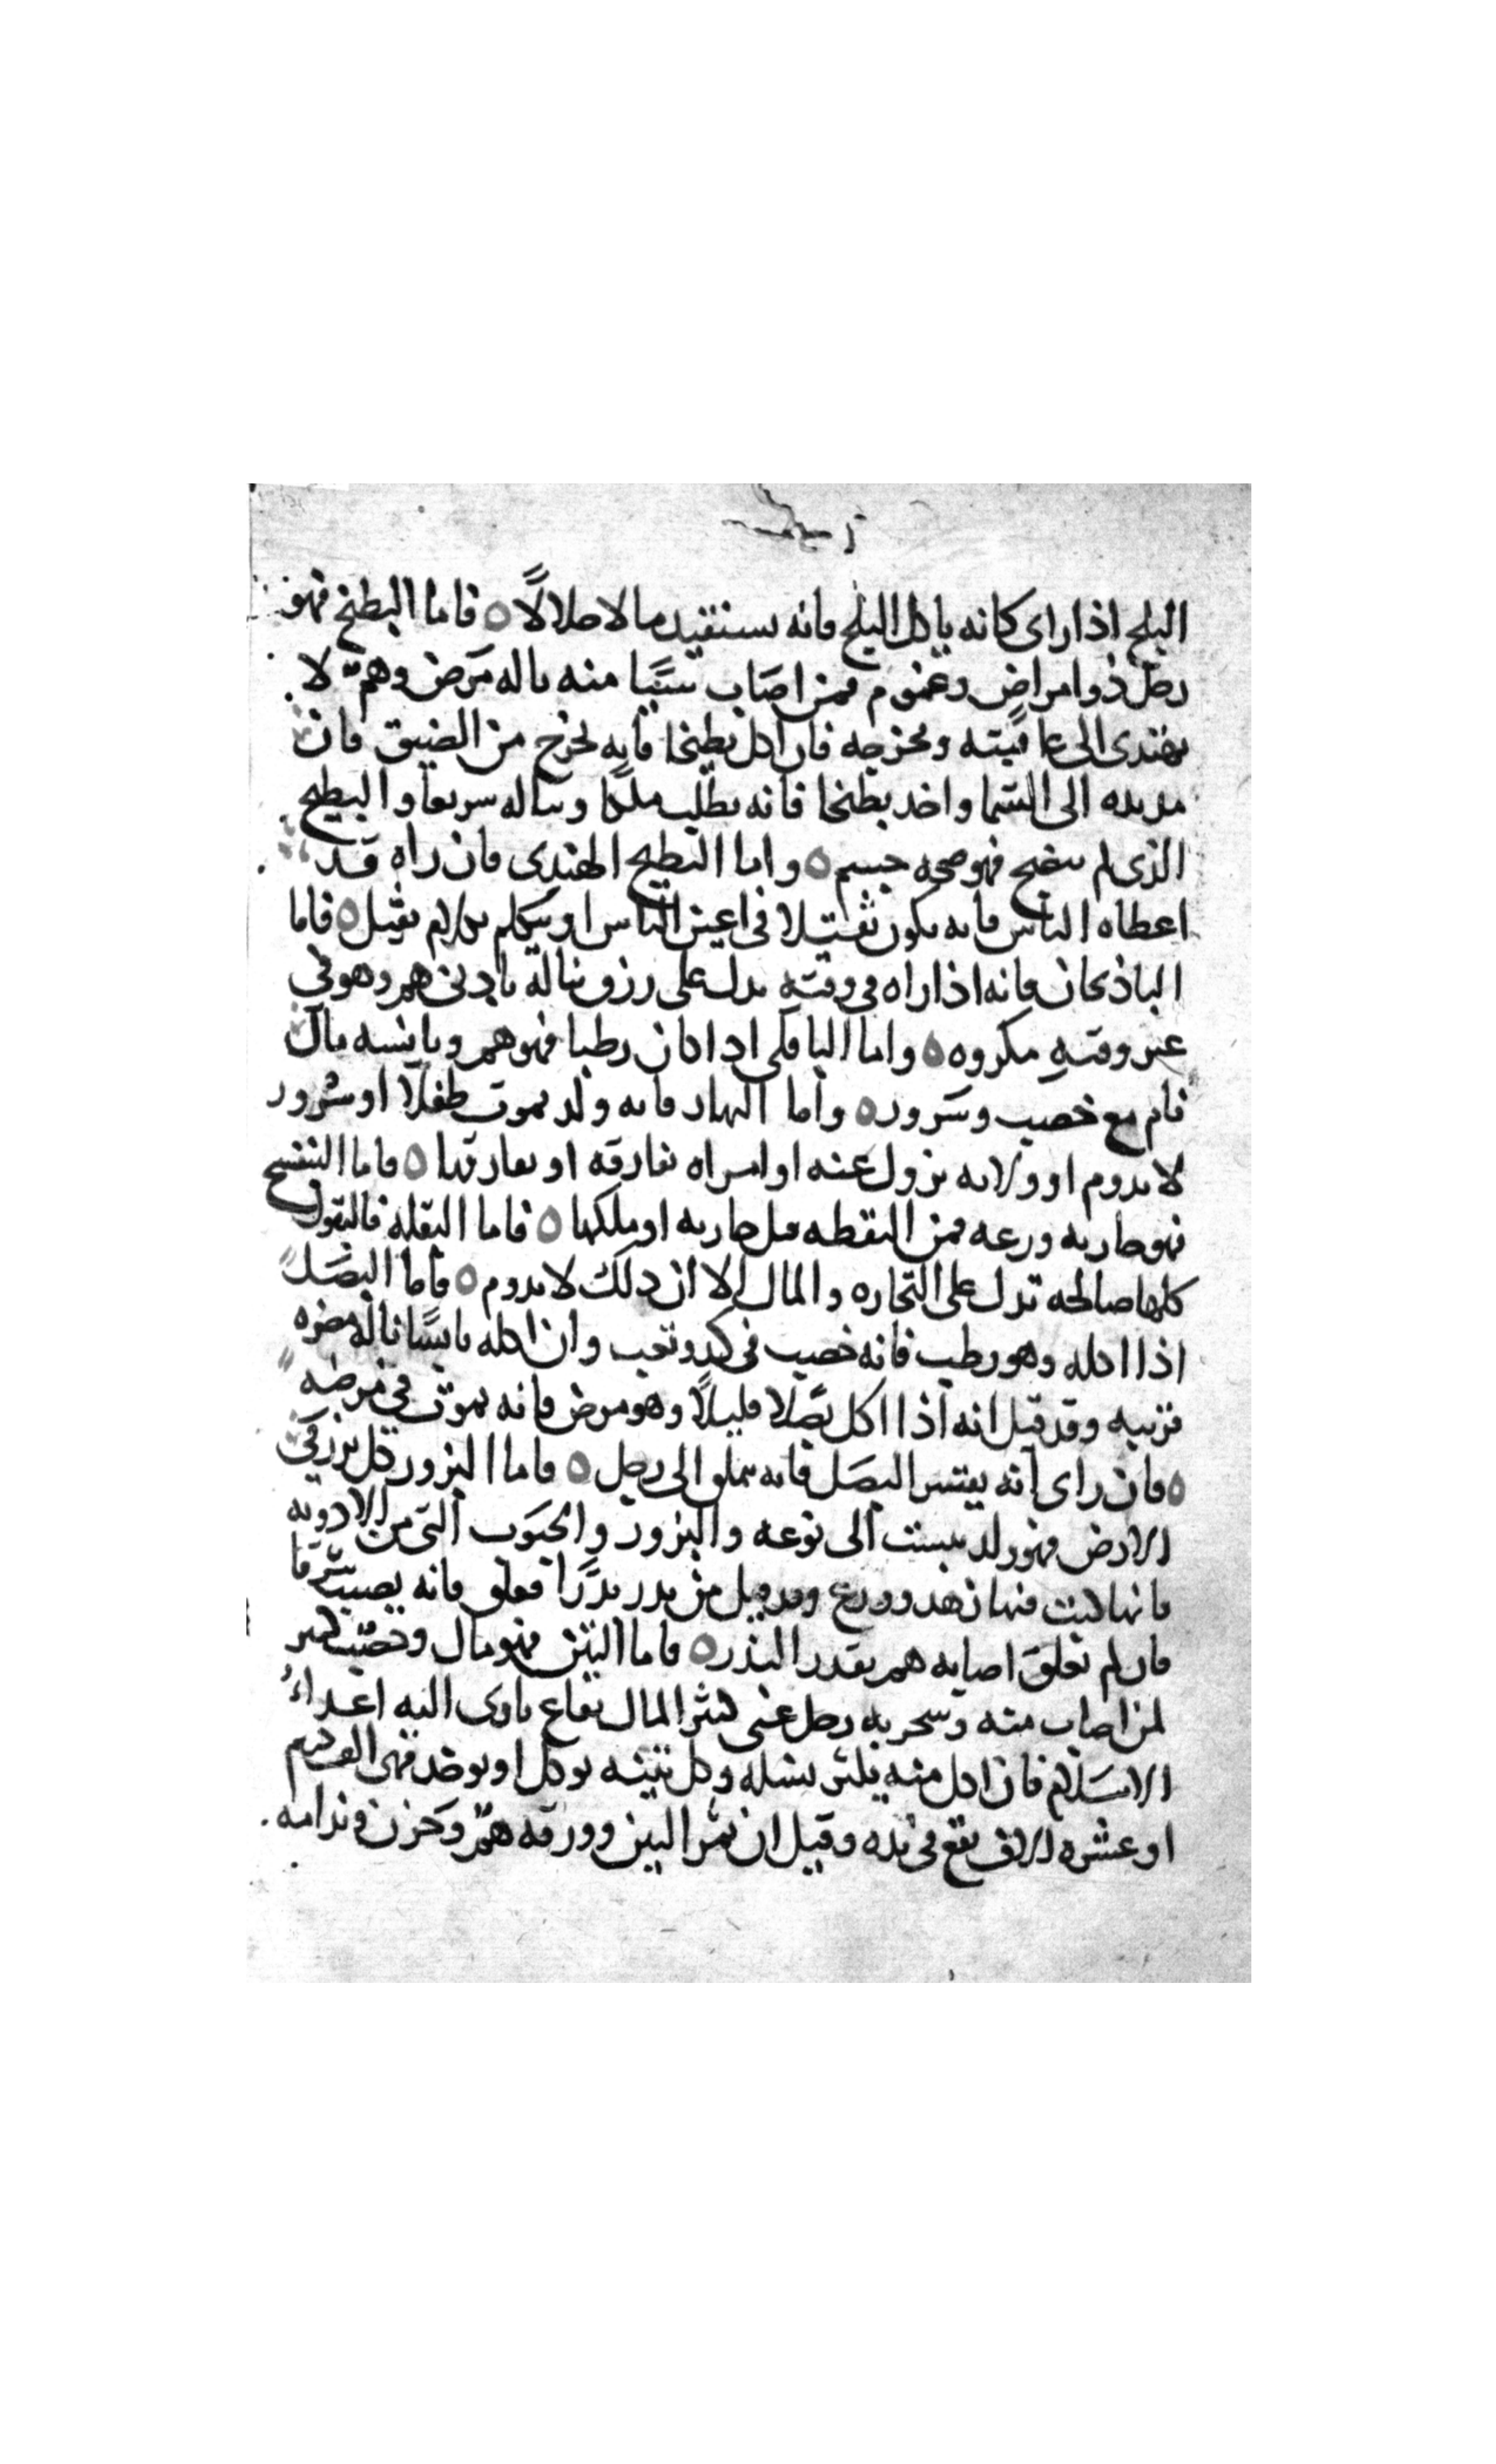 البلح اذا راى كانه ياكل البلح فانه يستفيد مالا حلالًا ه فاما البطيخ فهو
رجل ذو امراض وغموم فمن اصاب شيًا منه ناله مرض وهمّ لا
يهتدى الى عاقبته ومخرجه فان اكل بطيخا فانه يخرج من الضيق فان
مد يده الى السما واخد بطيخا فانه يطلب ملكا ويناله سريعا والبطيخ
الذى لم ينضج فهو صحه جسم ه واما البطيخ الهندى فان راه قد
اعطاه الناس فانه يكون ثقيلا فى اعين الناس او يتكلم بكلام ثقيل ه فاما
الباذنجان فانه اذا راه فى وقته يدل على رزق يناله بادنى هم وهو فى
غير وقته مكروه ه واما الباقلى اذا كان رطبا فهو هم ويابسه مال
نام مع خصب وسرور ه واما البهار فانه ولد يموت طفلًا او سُرور
لا يدوم او ولايه يزول عنه او امراه تفارقه او يفارقها ه فاما البنفسج
فهو جاريه ورعه فمن التقطه قبل جاريه او ملكها ه فاما البقله فالبقول
كلها صالحه تدل على التجاره والمال الا ان ذلك لا يدوم ه فاما البصل
اذا اكله وهو رطب فانه خصب فى كد وتعب وان اكله يابسًا ناله مضره
قريبه وقد قيل انه اذا اكل بصلا قليلًا وهو مريض فانه يموت فى مرضه
ه فان راى انه يقشر البصل فانه يتملق الى رجل ه فاما البزور كل بزر فى
الارض فهو ولد ينسب الى نوعه والبزور والحبوب التى من الادويه
فانها كتب فيها زهد وورع وقد قيل من بدر بدرًا فعلق فانه يصيب شرفا
فان لم يعلق اصابه هم بقدر البذر ه فاما التين فهو مال وخصب كثير
لمن اصاب منه وشجر به رجل غنى كثير المال نفاع ياوى اليه اعداءُ
الاسلام فان اكل منه يكثر نسله وكل تينه توكل او توخد فهى الف درهم
او عشره الاف تقع فى يده وقيل ان ثمر التين وورقه همّ وحزن وندامه